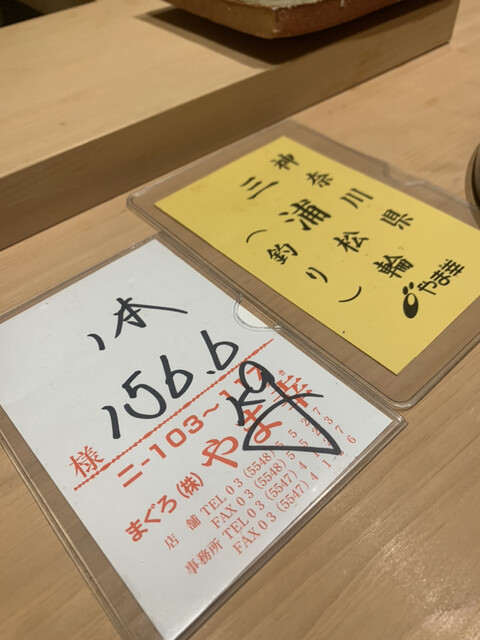 神奈川県
三浦松輪
(釣り)
やま幸
1本
156.6
kg
様
ニ-103~117
まぐろ(株)やま幸
店舗 TEL 03 (5548)
FAX 03 (5548)
事務所 TEL 03 (5547)
FAX 03 (5547)